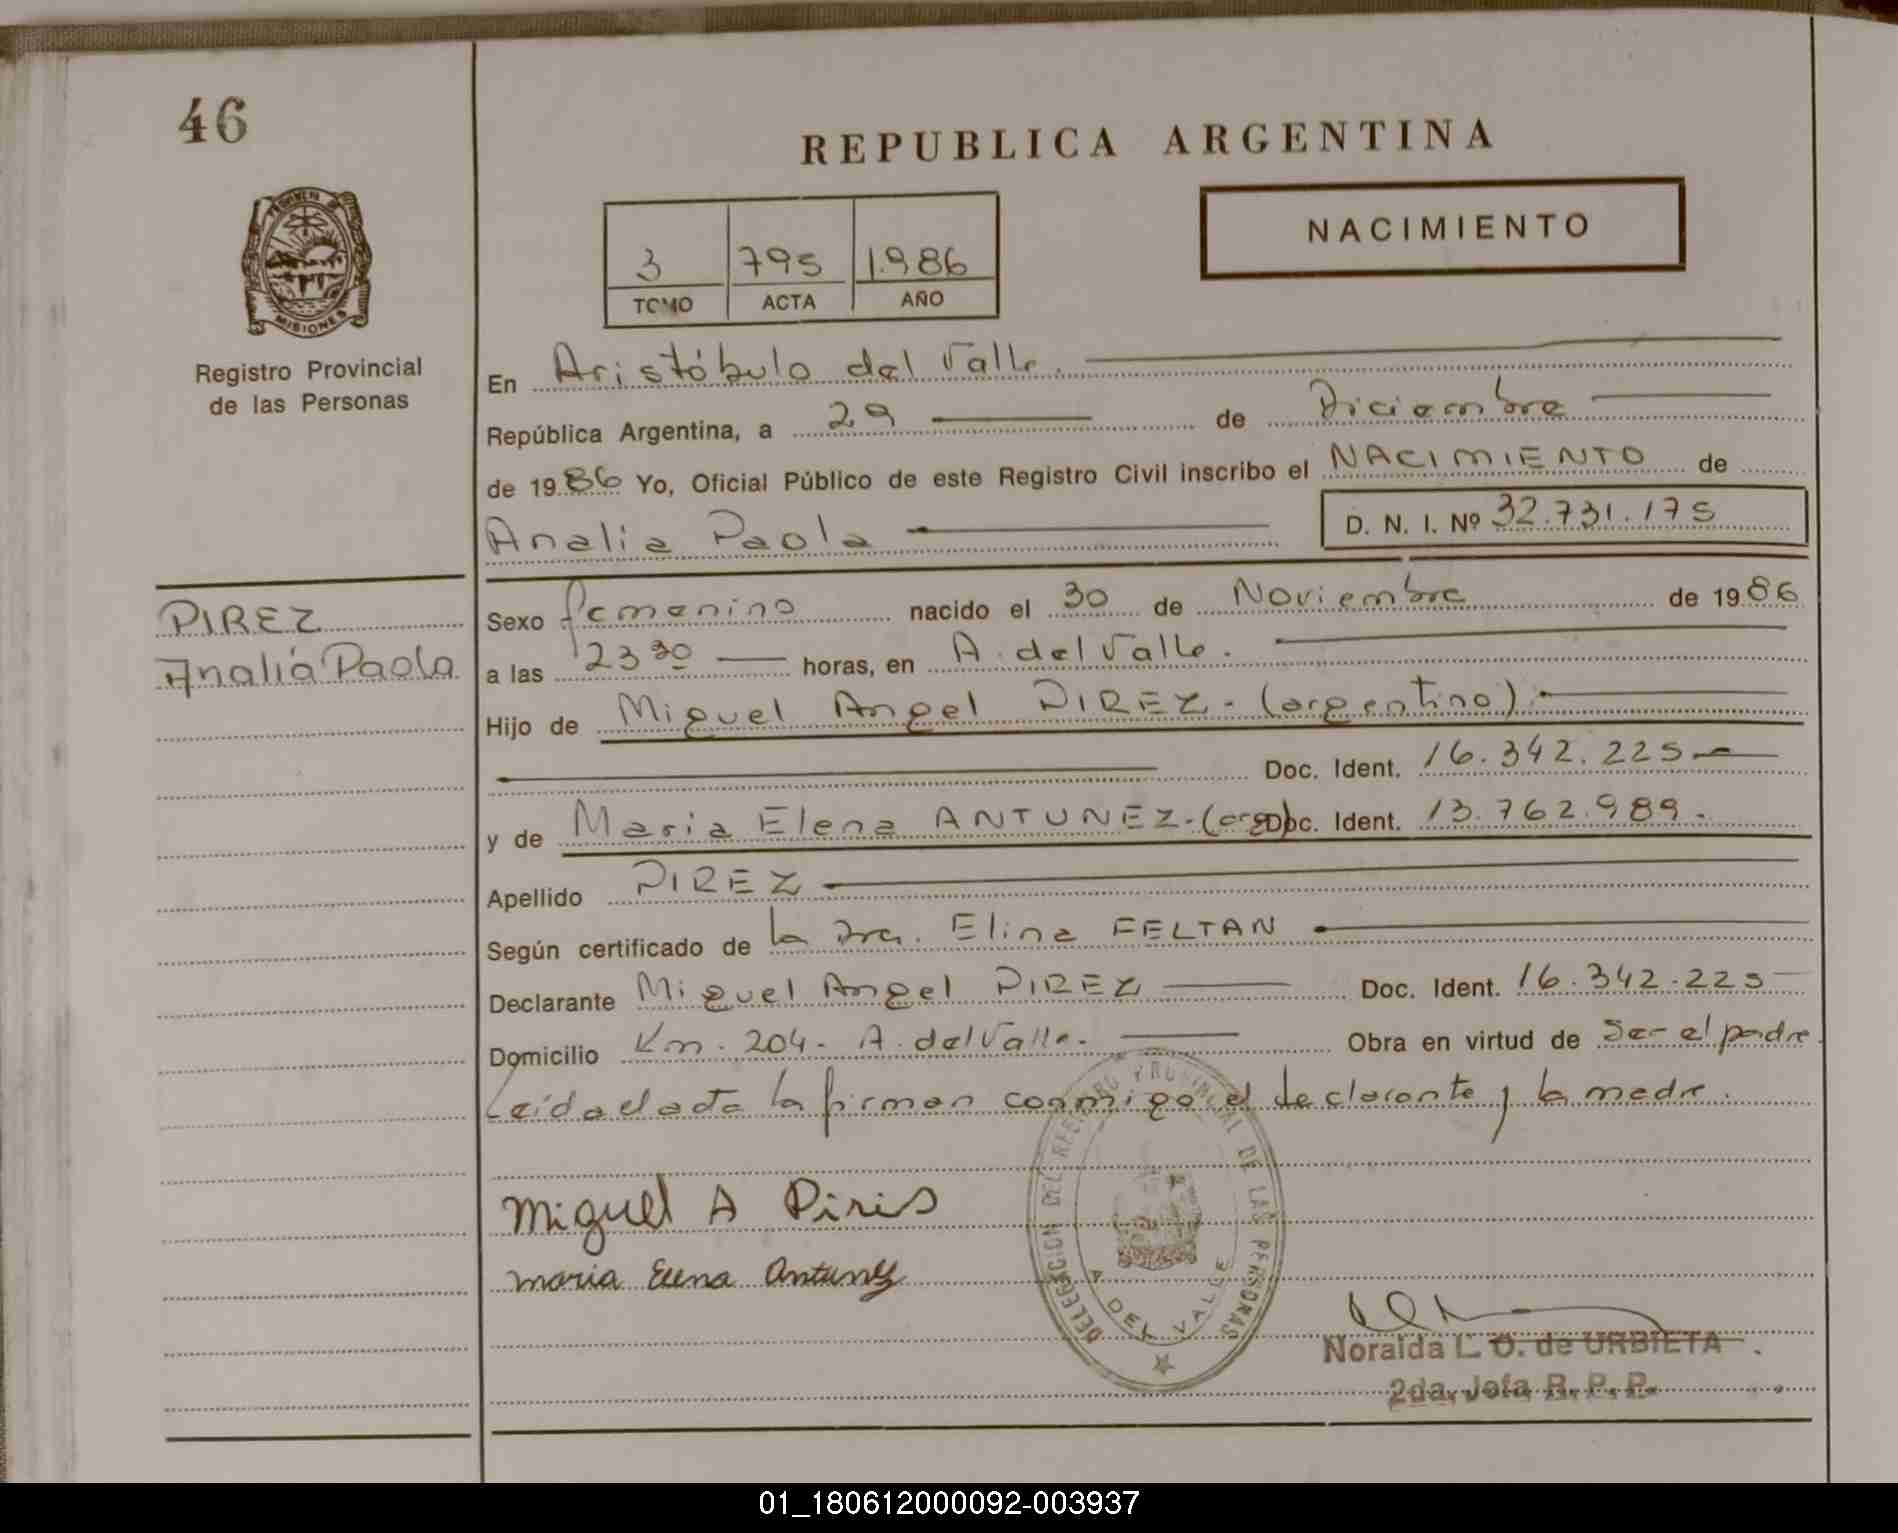 46
REPUBLICA ARGENTINA
PROVINCIA DE
MISIONES
Registro Provincial
de las Personas
3 795 1.986
TOMO ACTA AÑO
NACIMIENTO
En Aristóbulo del Valle.
República Argentina, a 29 de Diciembre
de 1986 Yo, Oficial Público de este Registro Civil inscribo el NACIMIENTO de
Analia Paola D. N. I. Nº 32.731.175
PIREZ
Analía Paola
Sexo femenino nacido el 30 de Noviembre de 1986
a las 23 30 horas, en A. del Valle.
Hijo de Miguel Angel PIREZ - (argentino).
Doc. Ident. 16.342.225
y de Maria Elena ANTUNEZ.- (arg.) Doc. Ident. 13.762.989.
Apellido PIREZ
Según certificado de la Dra. Elina FELTAN
Declarante Miguel Angel PIREZ Doc. Ident. 16.342.225
Domicilio Km. 204- A. del Valle. Obra en virtud de ser el padre.
Leída el acta la firman conmigo el declarante y la madre.
Miguel A Piris
maria Elena Antunez
DELEGACION DEL REGISTRO PROVINCIAL DE LAS PERSONAS
A DEL VALLE
Noralda L. O. de URBIETA
2da. Jefa R. P. P.
01_180612000092-003937